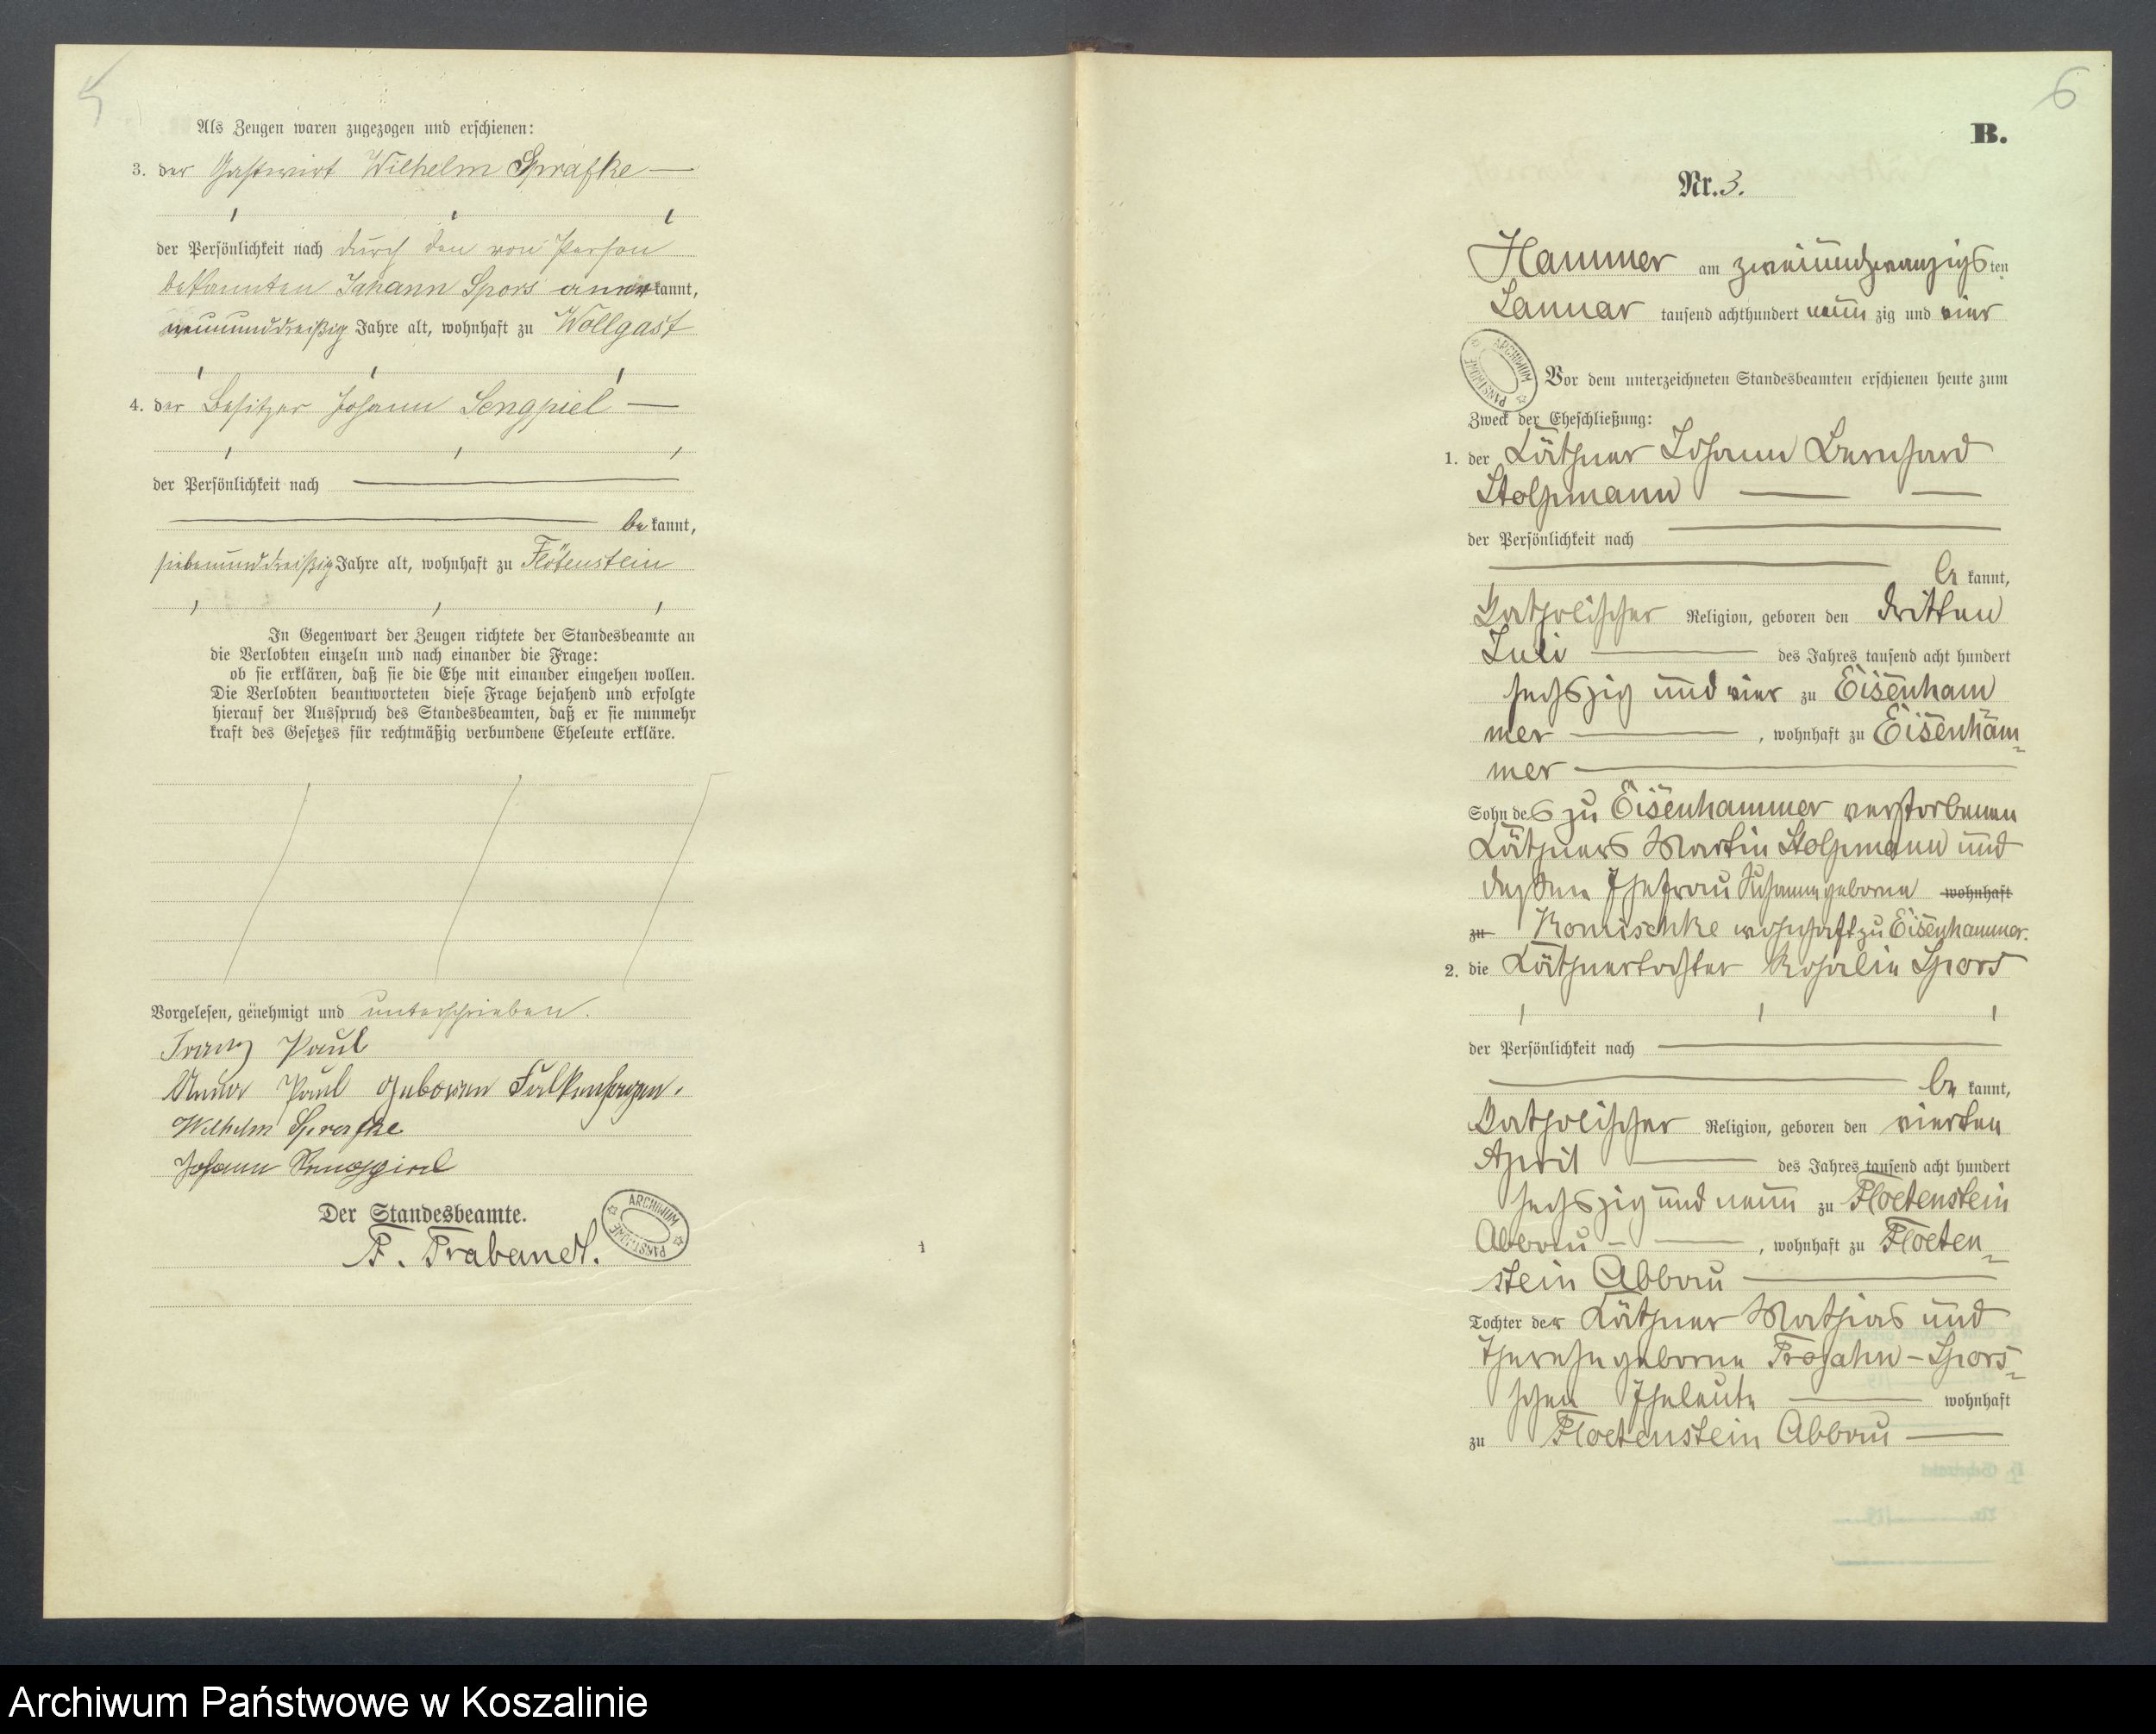 5
Als Zeugen waren zugezogen und erschienen:
3. der Gastwirt Wilhelm Sprafke —
der Persönlichkeit nach durch den von Person
bekannten Johann Spors anerkannt,
neununddreißig Jahre alt, wohnhaft zu Wollgast
4. der Besitzer Johann Sengpiel —
der Persönlichkeit nach —
— bekannt,
siebenunddreißig Jahre alt, wohnhaft zu Flötenstein
In Gegenwart der Zeugen richtete der Standesbeamte an
die Verlobten einzeln und nach einander die Frage:
ob sie erklären, daß sie die Ehe mit einander eingehen wollen.
Die Verlobten beantworteten diese Frage bejahend und erfolgte
hierauf der Ausspruch des Standesbeamten, daß er sie nunmehr
kraft des Gesetzes für rechtmäßig verbundene Eheleute erkläre.
Vorgelesen, genehmigt und unterschrieben.
Franz Paul
Paul geboren Falkenhagen.
Wilhelm Sprafke
Johann Sengpiel
Der Standesbeamte.
ARCHIWUM PAŃSTWOWE
F. Trabandt.
6
B.
Nr. 3.
Hammer am zweiundzwanzigsten
Januar tausend achthundert neunzig und vier
ARCHIWUM PAŃSTWOWE
Vor dem unterzeichneten Standesbeamten erschienen heute zum
Zweck der Eheschließung:
1. der Käthner Johann Bernhard
Stolpmann — —
der Persönlichkeit nach —
— bekannt,
katholischer Religion, geboren den dritten
Juli — des Jahres tausend acht hundert
sechszig und vier zu Eisenham
mer —, wohnhaft zu Eisenham=
mer —
Sohn des zu Eisenhammer verstorbenen
Käthners Martin Stolpmann und
dessen Ehefrau Susanna geborne wohnhaft
zu Komischke wohnhaft zu Eisenhammer.
2. die Käthnertochter Rosalie Spors
der Persönlichkeit nach —
— bekannt,
katholischer Religion, geboren den vierten
April — des Jahres tausend acht hundert
sechszig und neun zu Floetenstein
Abbau — —, wohnhaft zu Floeten=
stein Abbau —
Tochter der Käthner Mathias und
Therese geborne Trojahn - Spors=
schen Eheleute — wohnhaft
zu Floetenstein Abbau —
Archiwum Państwowe w Koszalinie